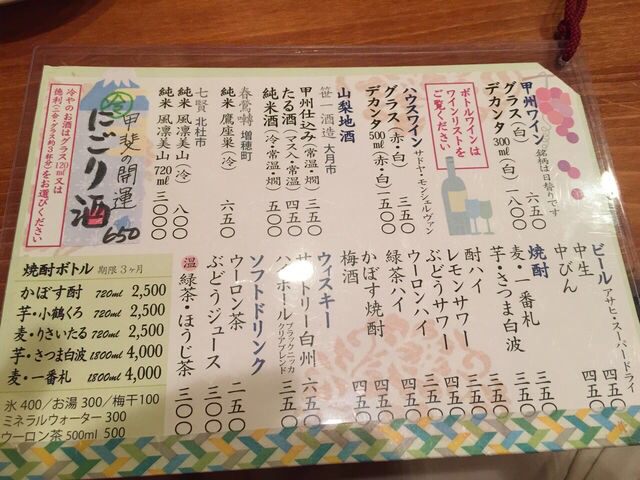 甲州ワイン 銘柄は日替りです
グラス(白) 六五〇
デカンタ 300ml(白) 一八〇〇
ボトルワインは
ワインリストを
ご覧ください
ハウスワイン サドヤ・モンシェルヴァン
グラス(赤・白) 三五〇
デカンタ 500ml(赤・白) 一五〇〇
山梨地酒
笹一酒造 大月市
甲州仕込み(冷・常温・燗) 三五〇
たる酒(マス入・常温) 四五〇
純米酒(冷・常温・燗) 五五〇
春鶯囀 増穂町
純米 鷹座巣(冷) 六五〇
七賢 北杜市
純米 風凛美山(冷) 八〇〇
純米 風凛美山 720ml 三〇〇〇
冷
甲斐の開運
にごり酒
650
冷やのお酒はグラス120ml又は
徳利(二合・グラス約3杯分)を
お選びください
ビール アサヒ・スーパードライ
中生 四五〇
中びん 五五〇
焼酎
麦・一番札 三五〇
芋・さつま白波 三五〇
酎ハイ 三五〇
レモンサワー 四五〇
ぶどうサワー 四五〇
ウーロンハイ 四五〇
緑茶ハイ 四五〇
かぼす焼酎 四五〇
梅酒 四五〇
ウィスキー
サントリー白州 六五〇
ハイボール ブラックニッカ クリアブレンド 三五〇
ソフトドリンク
ウーロン茶 二五〇
ぶどうジュース 三五〇
温 緑茶・ほうじ茶 三〇〇
焼酎ボトル 期限3ヶ月
かぼす酎 720ml 2,500
芋・小鶴くろ 720ml 2,500
麦・りさいたる 720ml 2,500
芋・さつま白波 1800ml 4,000
麦・一番札 1800ml 4,000
氷 400/お湯 300/梅干100
ミネラルウォーター 300
ウーロン茶 500ml 500